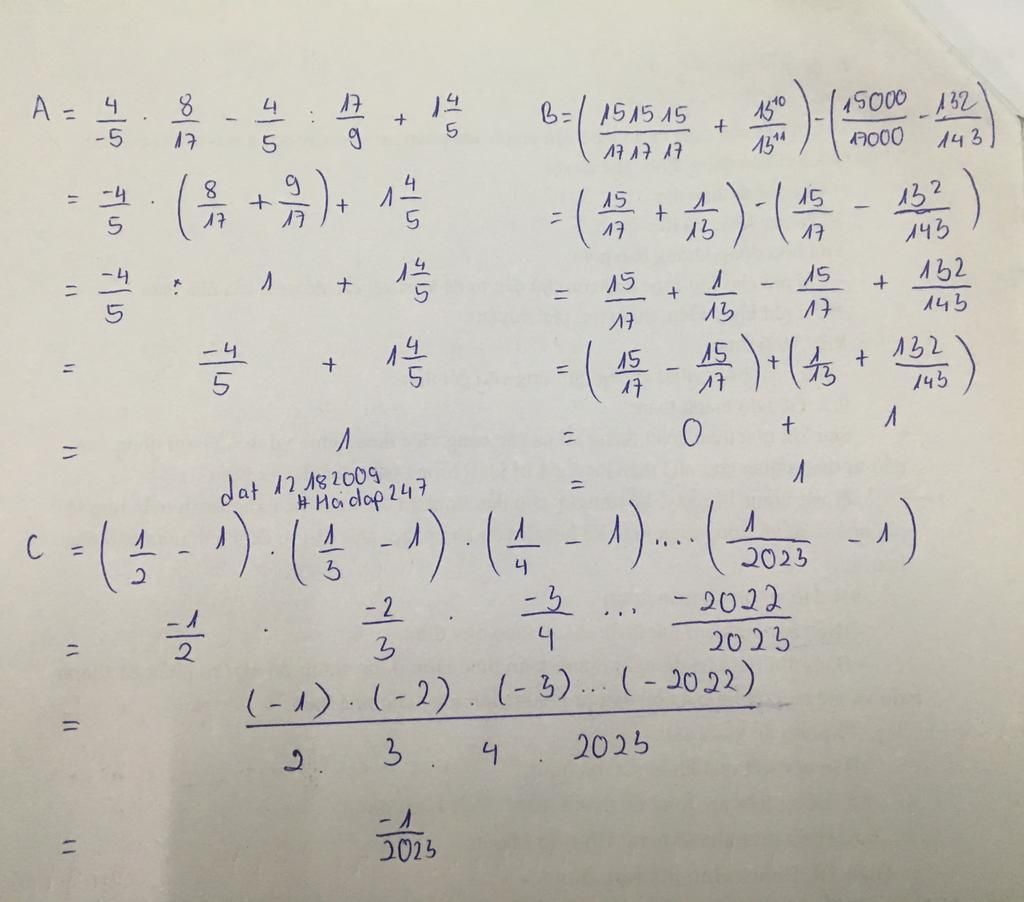 A = 4/-5 · 8/17 - 4/5 : 17/9 + 1 4/5
= -4/5 · (8/17 + 9/17) + 1 4/5
= -4/5 · 1 + 1 4/5
= -4/5 + 1 4/5
= 1
B = (151515/171717 + 13^10/13^11) - (15000/17000 - 132/143)
= (15/17 + 1/13) - (15/17 - 132/143)
= 15/17 + 1/13 - 15/17 + 132/143
= (15/17 - 15/17) + (1/13 + 132/143)
= 0 + 1
= 1
dat 12 182009
#Hoidap247
C = (1/2 - 1) · (1/3 - 1) · (1/4 - 1) .... (1/2023 - 1)
= -1/2 · -2/3 · -3/4 ... -2022/2023
= (-1) (-2) · (-3) ... (-2022) / 2 . 3 . 4 . 2023
= -1/2023